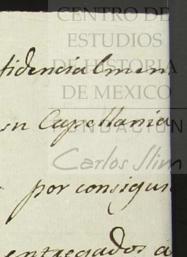 CENTRO DE
ESTUDIOS
DE HISTORIA
DE MEXICO
FUNDACIÓN
Carlos Slim
fidencialmen
su Capellania
por consigui
entregados a